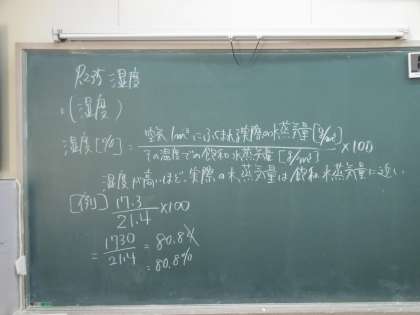 P.235 湿度
・(湿度)
湿度[%] = 空気1m³にふくまれる実際の水蒸気量[g/m³] / その温度での飽和水蒸気量[g/m³] ×100
湿度が高いほど、実際の水蒸気量は飽和水蒸気量に近い
[例] 17.3 / 21.4 ×100
= 1730 / 21.4 = 80.84
≒ 80.8%